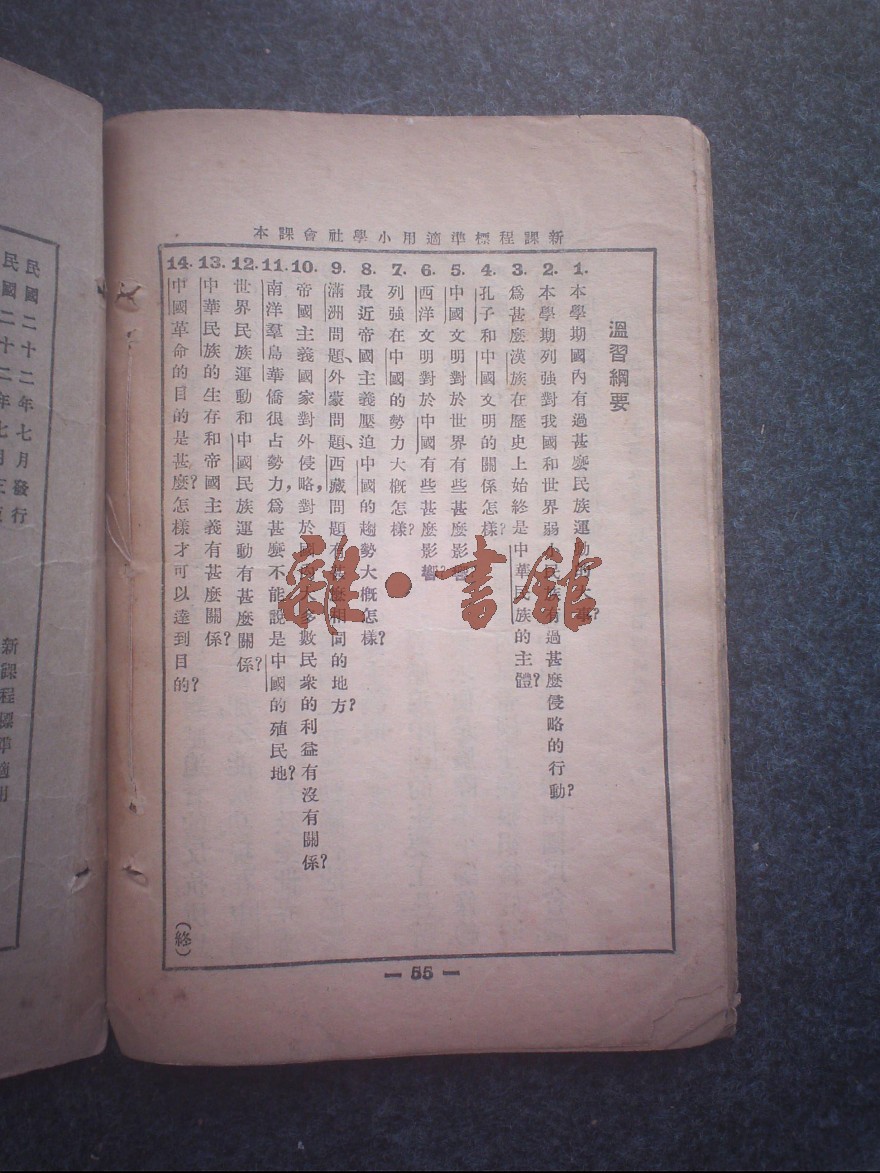 新課程標準適用小學社會課本
溫習綱要
1. 本學期國內有過甚麼民族運動的大事?
2. 本學期列強對我國和世界弱小民族有過甚麼侵略的行動?
3. 爲甚麼漢族在歷史上始終是中華民族的主體?
4. 孔子和中國文明的關係怎樣?
5. 中國文明對於世界有些甚麼影響?
6. 西洋文明對於中國有些甚麼影響?
7. 列強在中國的勢力大概怎樣?
8. 最近帝國主義壓迫中國的趨勢大概怎樣?
9. 滿洲問題、外蒙問題、西藏問題有甚麼相同的地方?
10. 帝國主義國家對外侵略,對於國內大多數民衆的利益有沒有關係?
11. 南洋羣島華僑很占勢力,爲甚麼不能說是中國的殖民地?
12. 世界民族運動和中國民族運動有甚麼關係?
13. 中華民族的生存和帝國主義有甚麼關係?
14. 中國革命的目的是甚麼?怎樣才可以達到目的?
(終)
— 55 —
民國二十二年七月發行
民國二十二年七月三
新課程標準適用
雜·書館